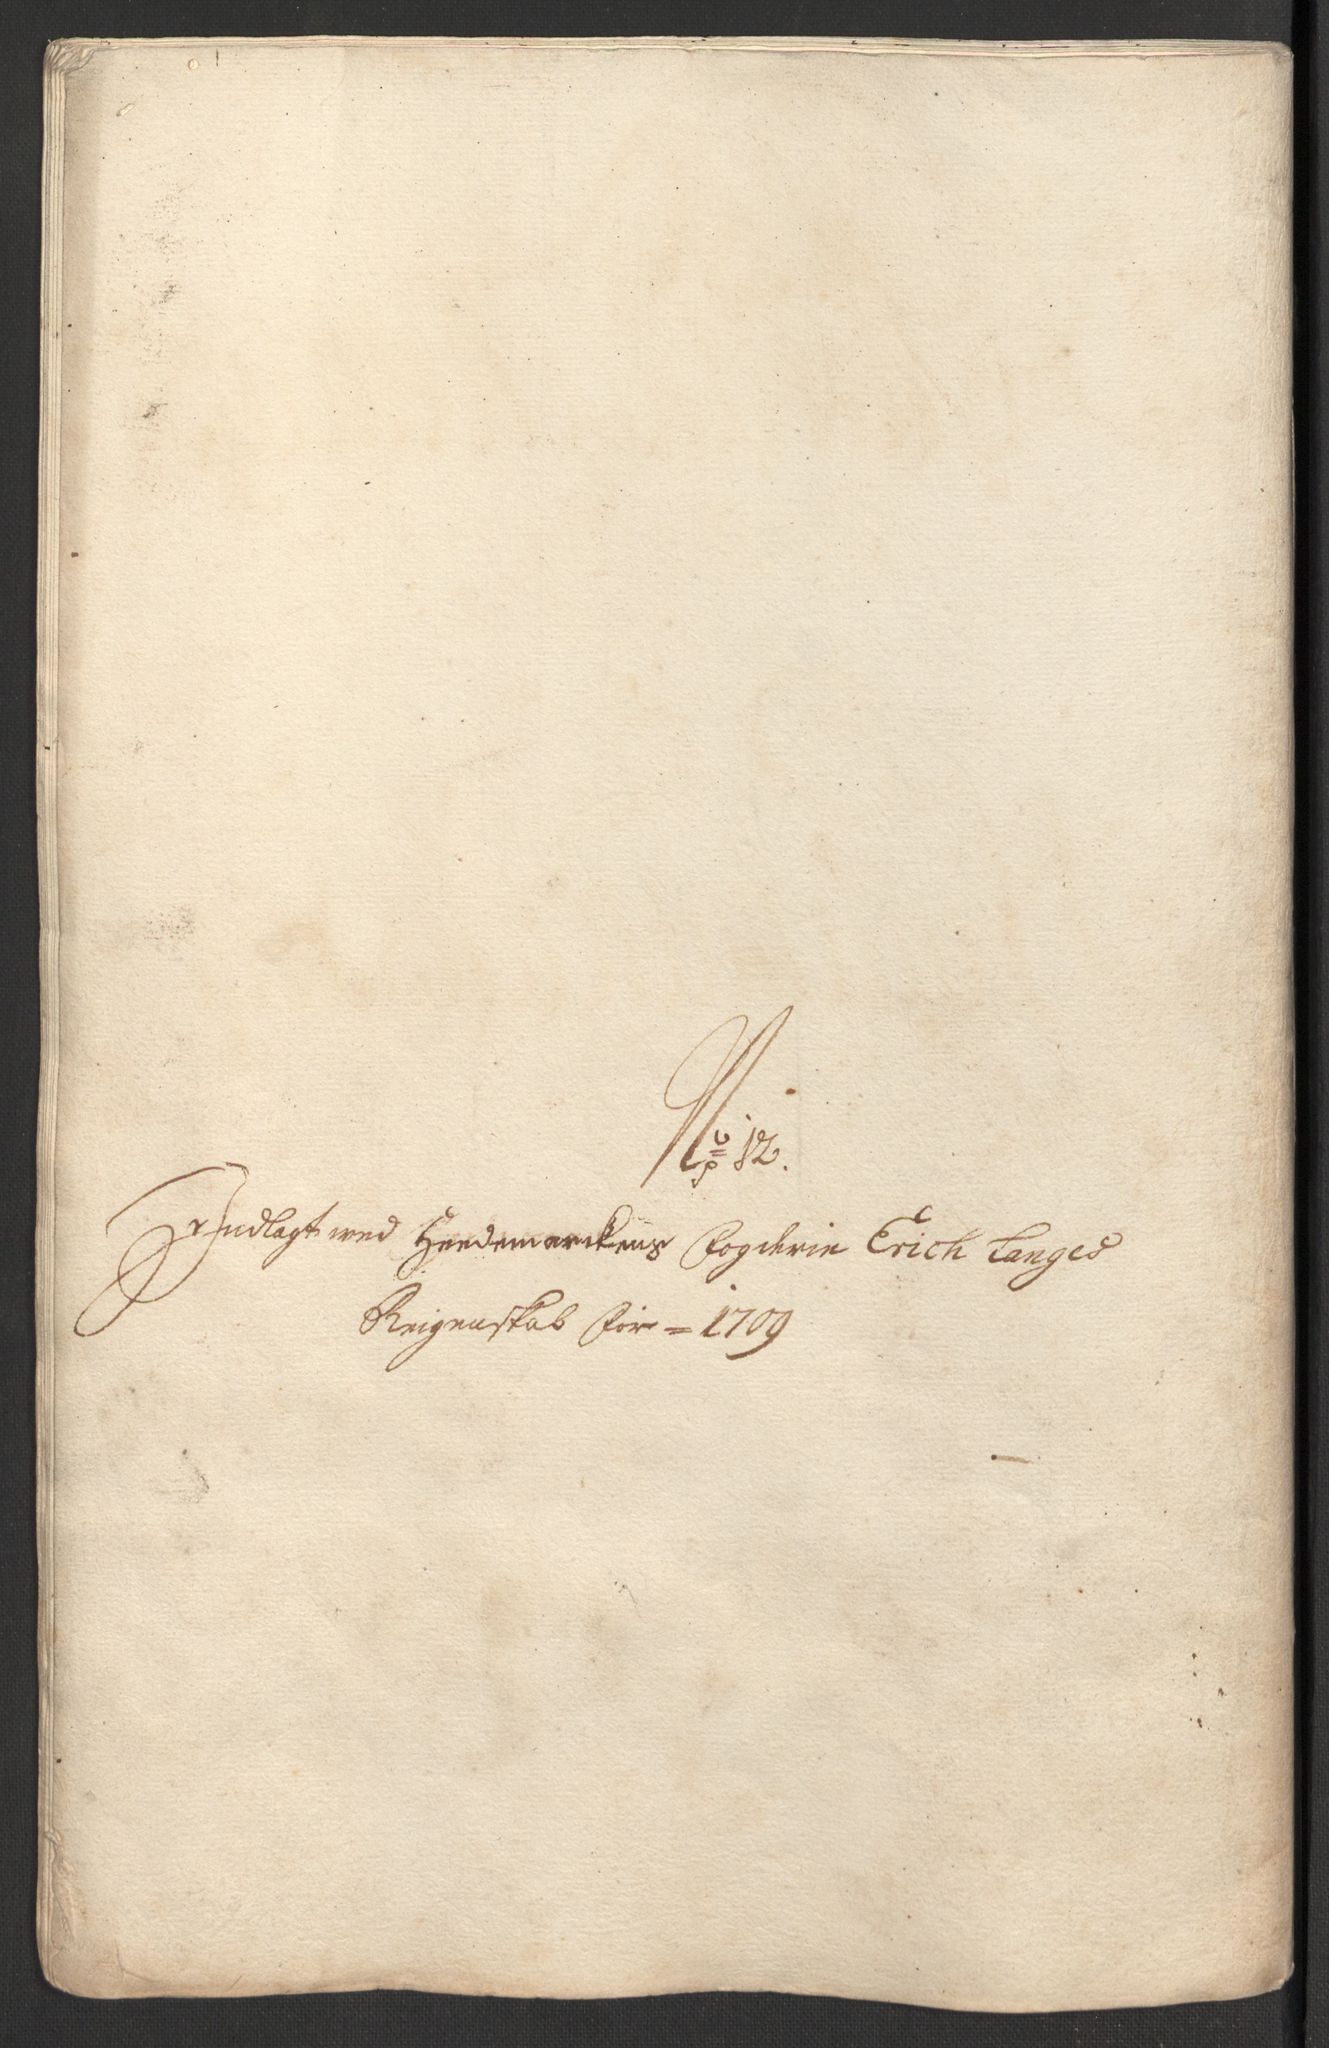 No 12.
Indlagt med Heedemarckens Fogderie Erich Langes
Reigenskab For = 1709